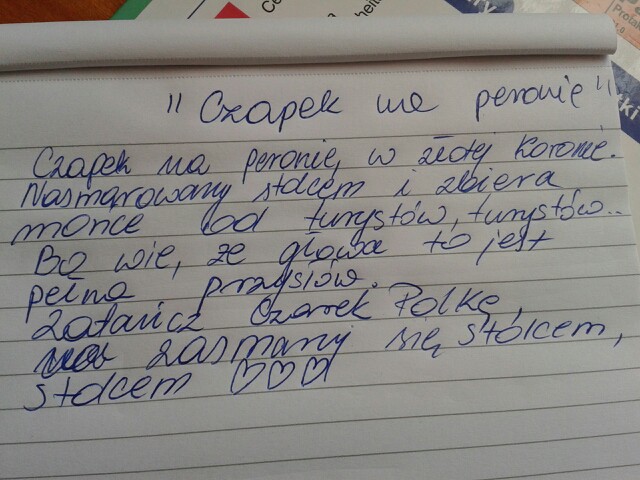 Ce
"Czapek na peronie"
Czapek na peronie, w złotej koronie.
Nasmarowany stolcem i zbiera
monce od turystów, turystów..
Bo wie, że głowa to jest
pełna przysłów.
Zatańcz Czarek Polkę,
zasmaruj się stolcem,
stolcem ♡♡♡